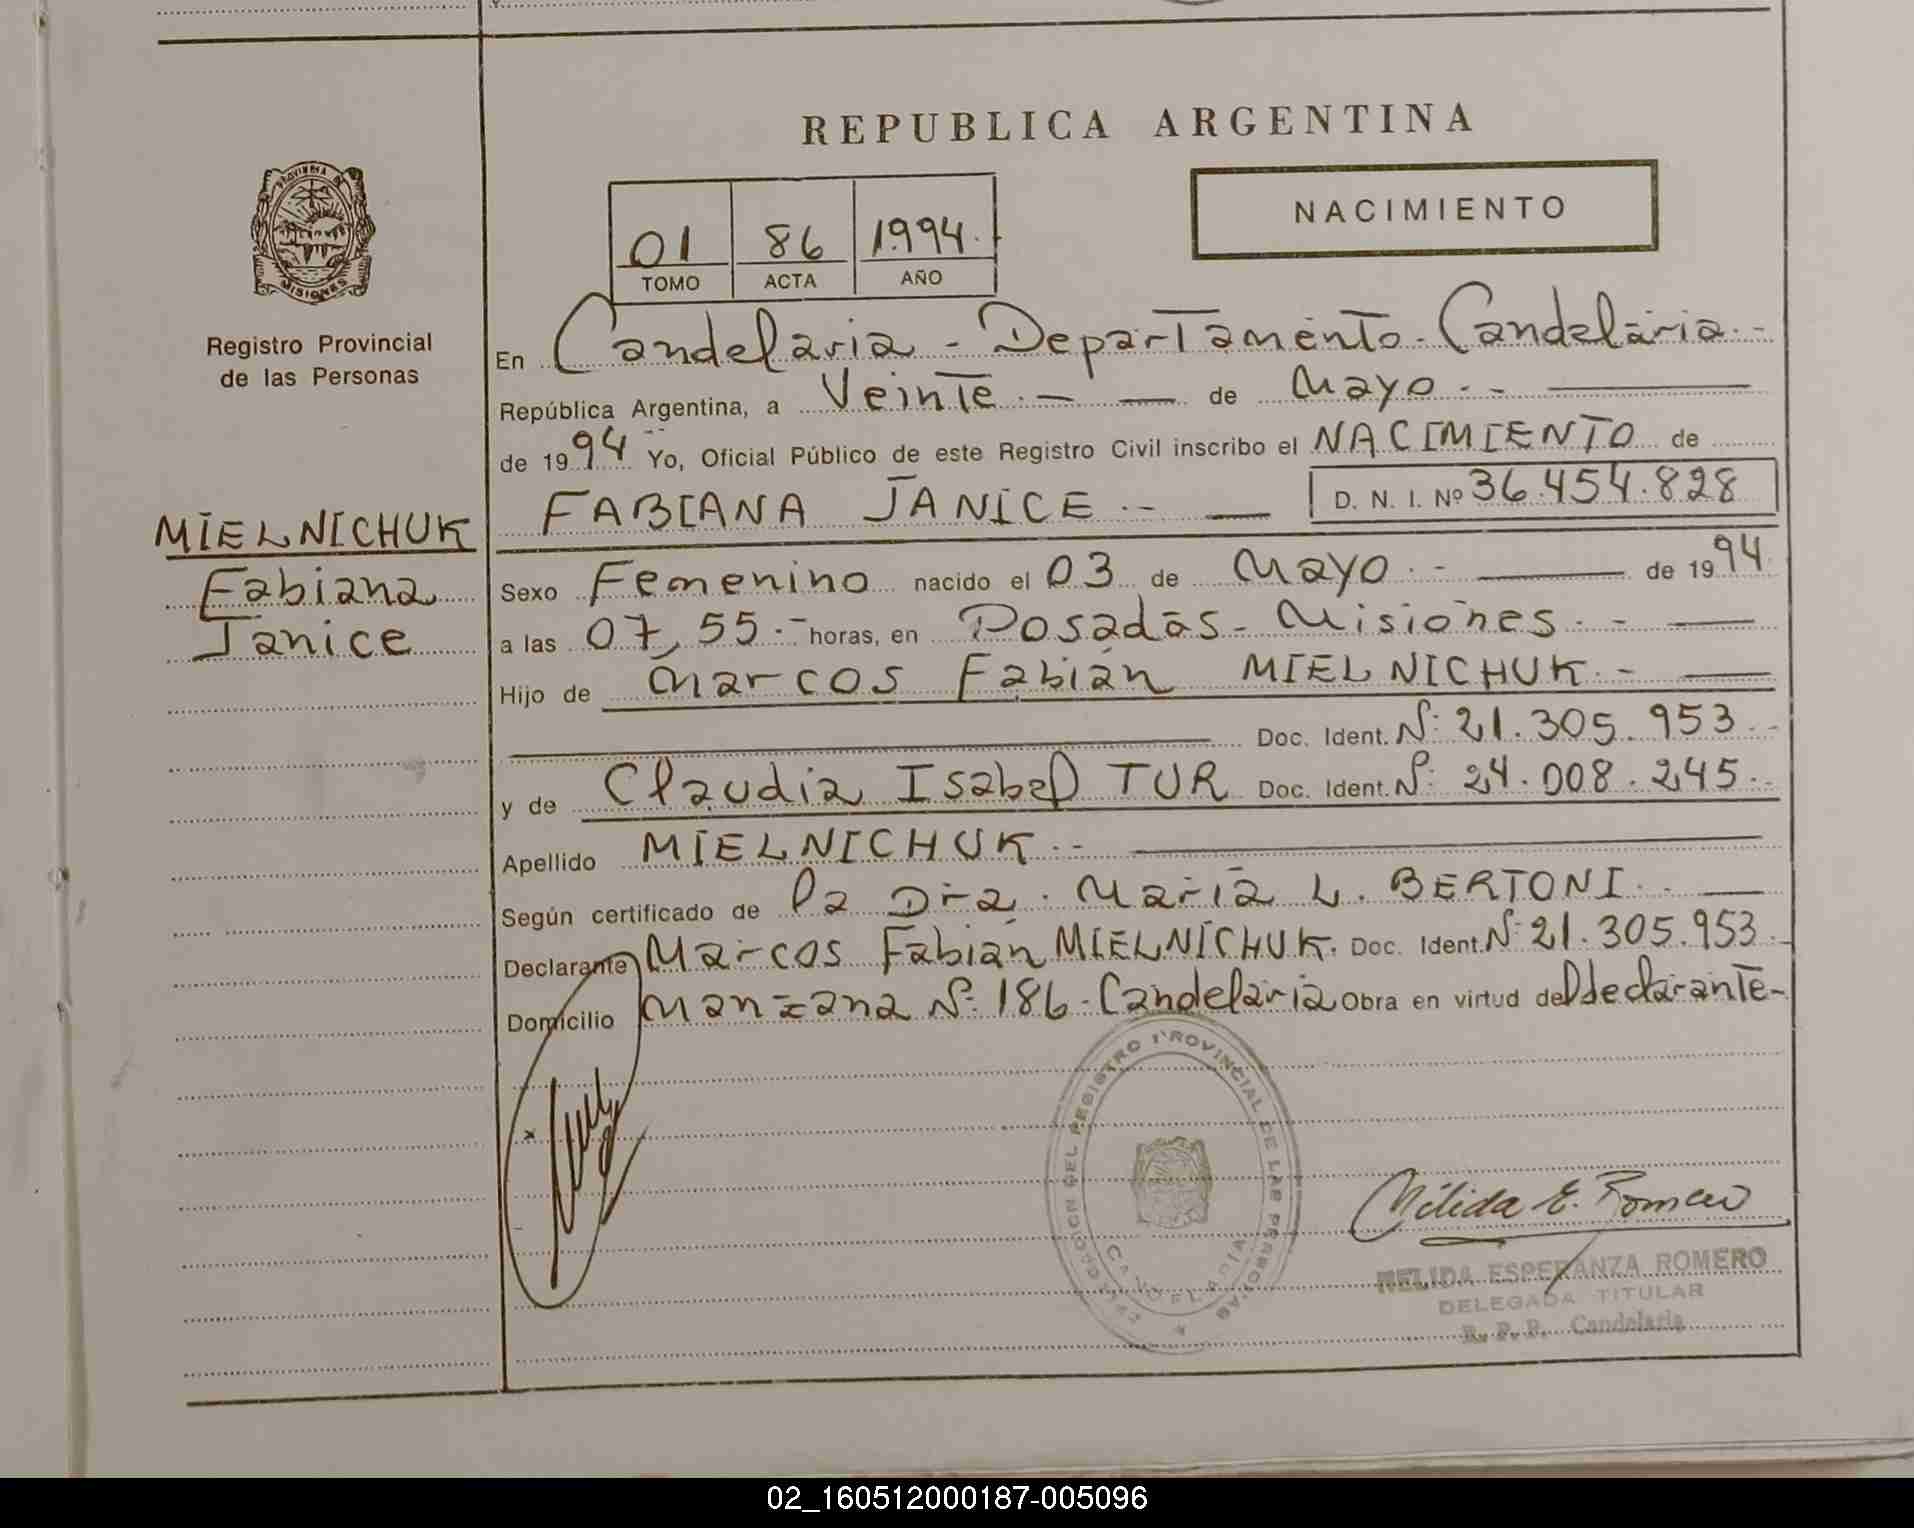 REPUBLICA ARGENTINA
NACIMIENTO
PROVINCIA DE
MISIONES
Registro Provincial
de las Personas
01 86 1994.
TOMO ACTA AÑO
En Candelaria - Departamento - Candelaria.-
República Argentina, a Veinte.- — de Mayo.-
de 1994 Yo, Oficial Público de este Registro Civil inscribo el NACIMIENTO de
FABIANA JANICE.- — D. N. I. Nº 36.454.828
MIELNICHUK
Fabiana
Janice
Sexo Femenino nacido el 03 de Mayo.- — de 1994.
a las 07,55.- horas, en Posadas - Misiones.- —
Hijo de Marcos Fabián MIELNICHUK.- —
Doc. Ident. Nº 21.305.953.-
y de Claudia Isabel TUR Doc. Ident. Nº 24.008.245.-
Apellido MIELNICHUK.-
Según certificado de la Dra. María L. BERTONI.- —
Declarante Marcos Fabián MIELNICHUK. Doc. Ident. Nº 21.305.953.-
Domicilio Manzana Nº 186 - Candelaria Obra en virtud del declarante-
DEL REGISTRO PROVINCIAL DE LAS PERSONAS
CANDELARIA
Nélida E. Romero
NELIDA ESPERANZA ROMERO
DELEGADA TITULAR
R. P. P. Candelaria
02_160512000187-005096